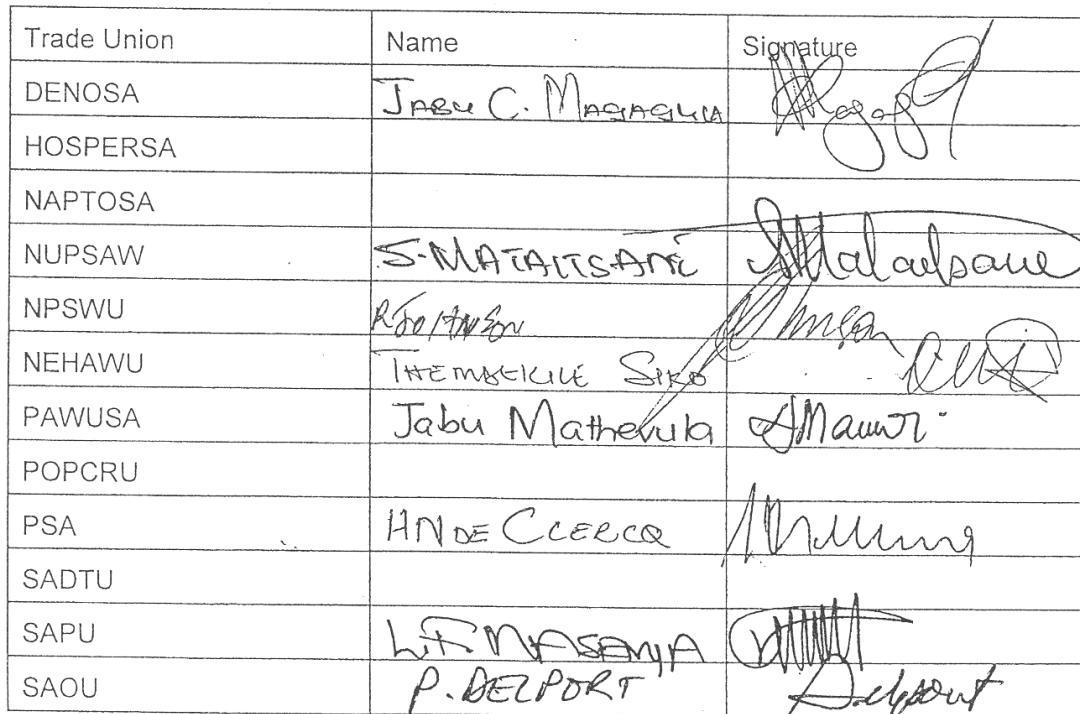 Trade Union Name Signature
DENOSA JABU C. MAGAGULA
HOSPERSA
NAPTOSA
NUPSAW S. MATAITSANE
NPSWU R JOHANSON
NEHAWU THEMBEKILE SIKO
PAWUSA Jabu Mathevula
POPCRU
PSA HN DE CLERCQ
SADTU
SAPU L.F. MASANYA
SAOU P. DELPORT Delport